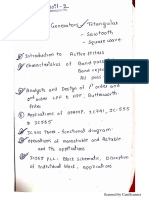 Generators - Triangular
- Sawtooth
- Square wave
Introduction to Active filters
Characteristics of Band pass
Band reject
All pass
Analysis and Design of 1st order and
2nd order LPF & HPF, Butterworth
Filters
Applications of
& IC565.
IC 555 Timer - Functional diagram
operations of monostable and Astable
and its applications
IC565 PLL - Block schematic, Description
of individual block, Applications